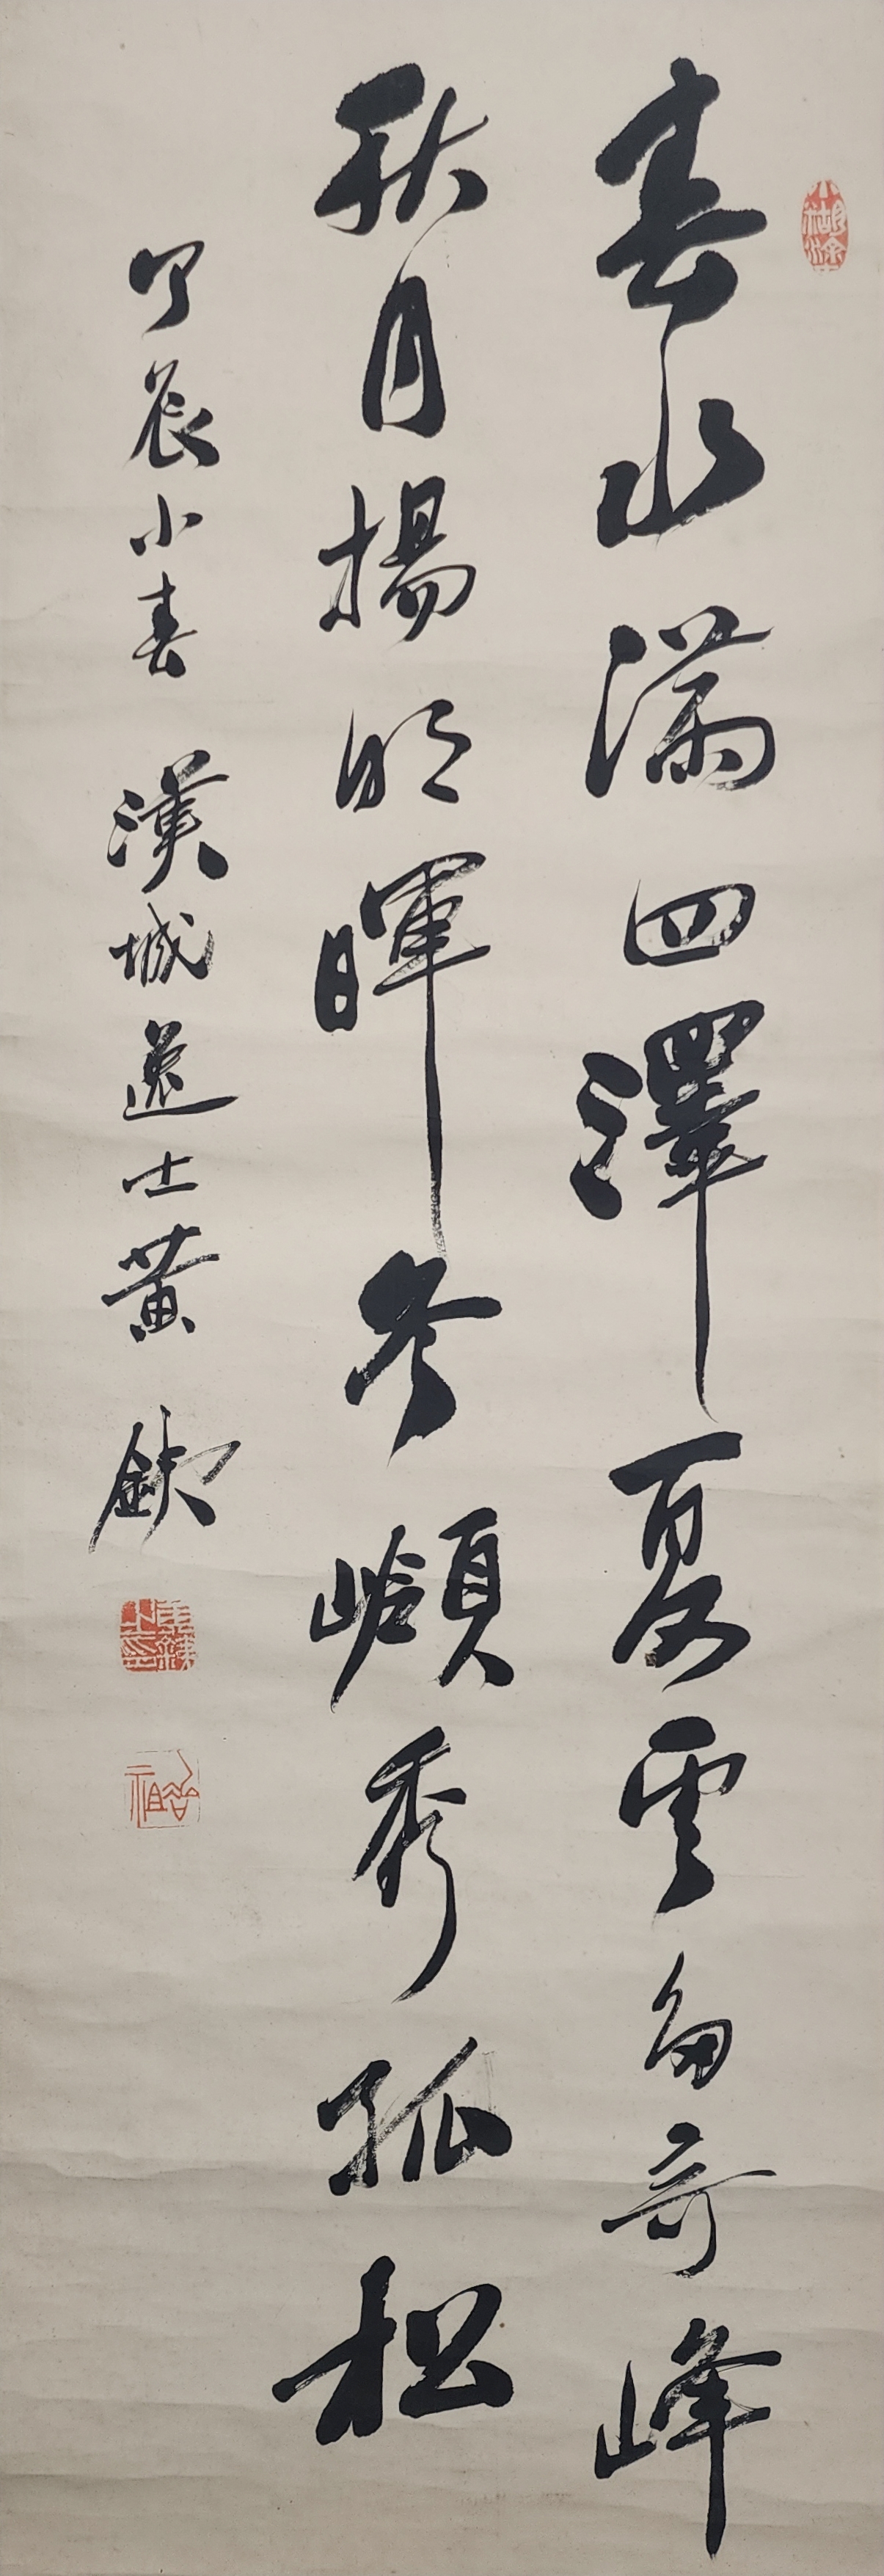 春水滿四澤夏雲多奇峰
秋月揚明暉冬嶺秀孤松
甲辰小春 漢城逸士黃鉄